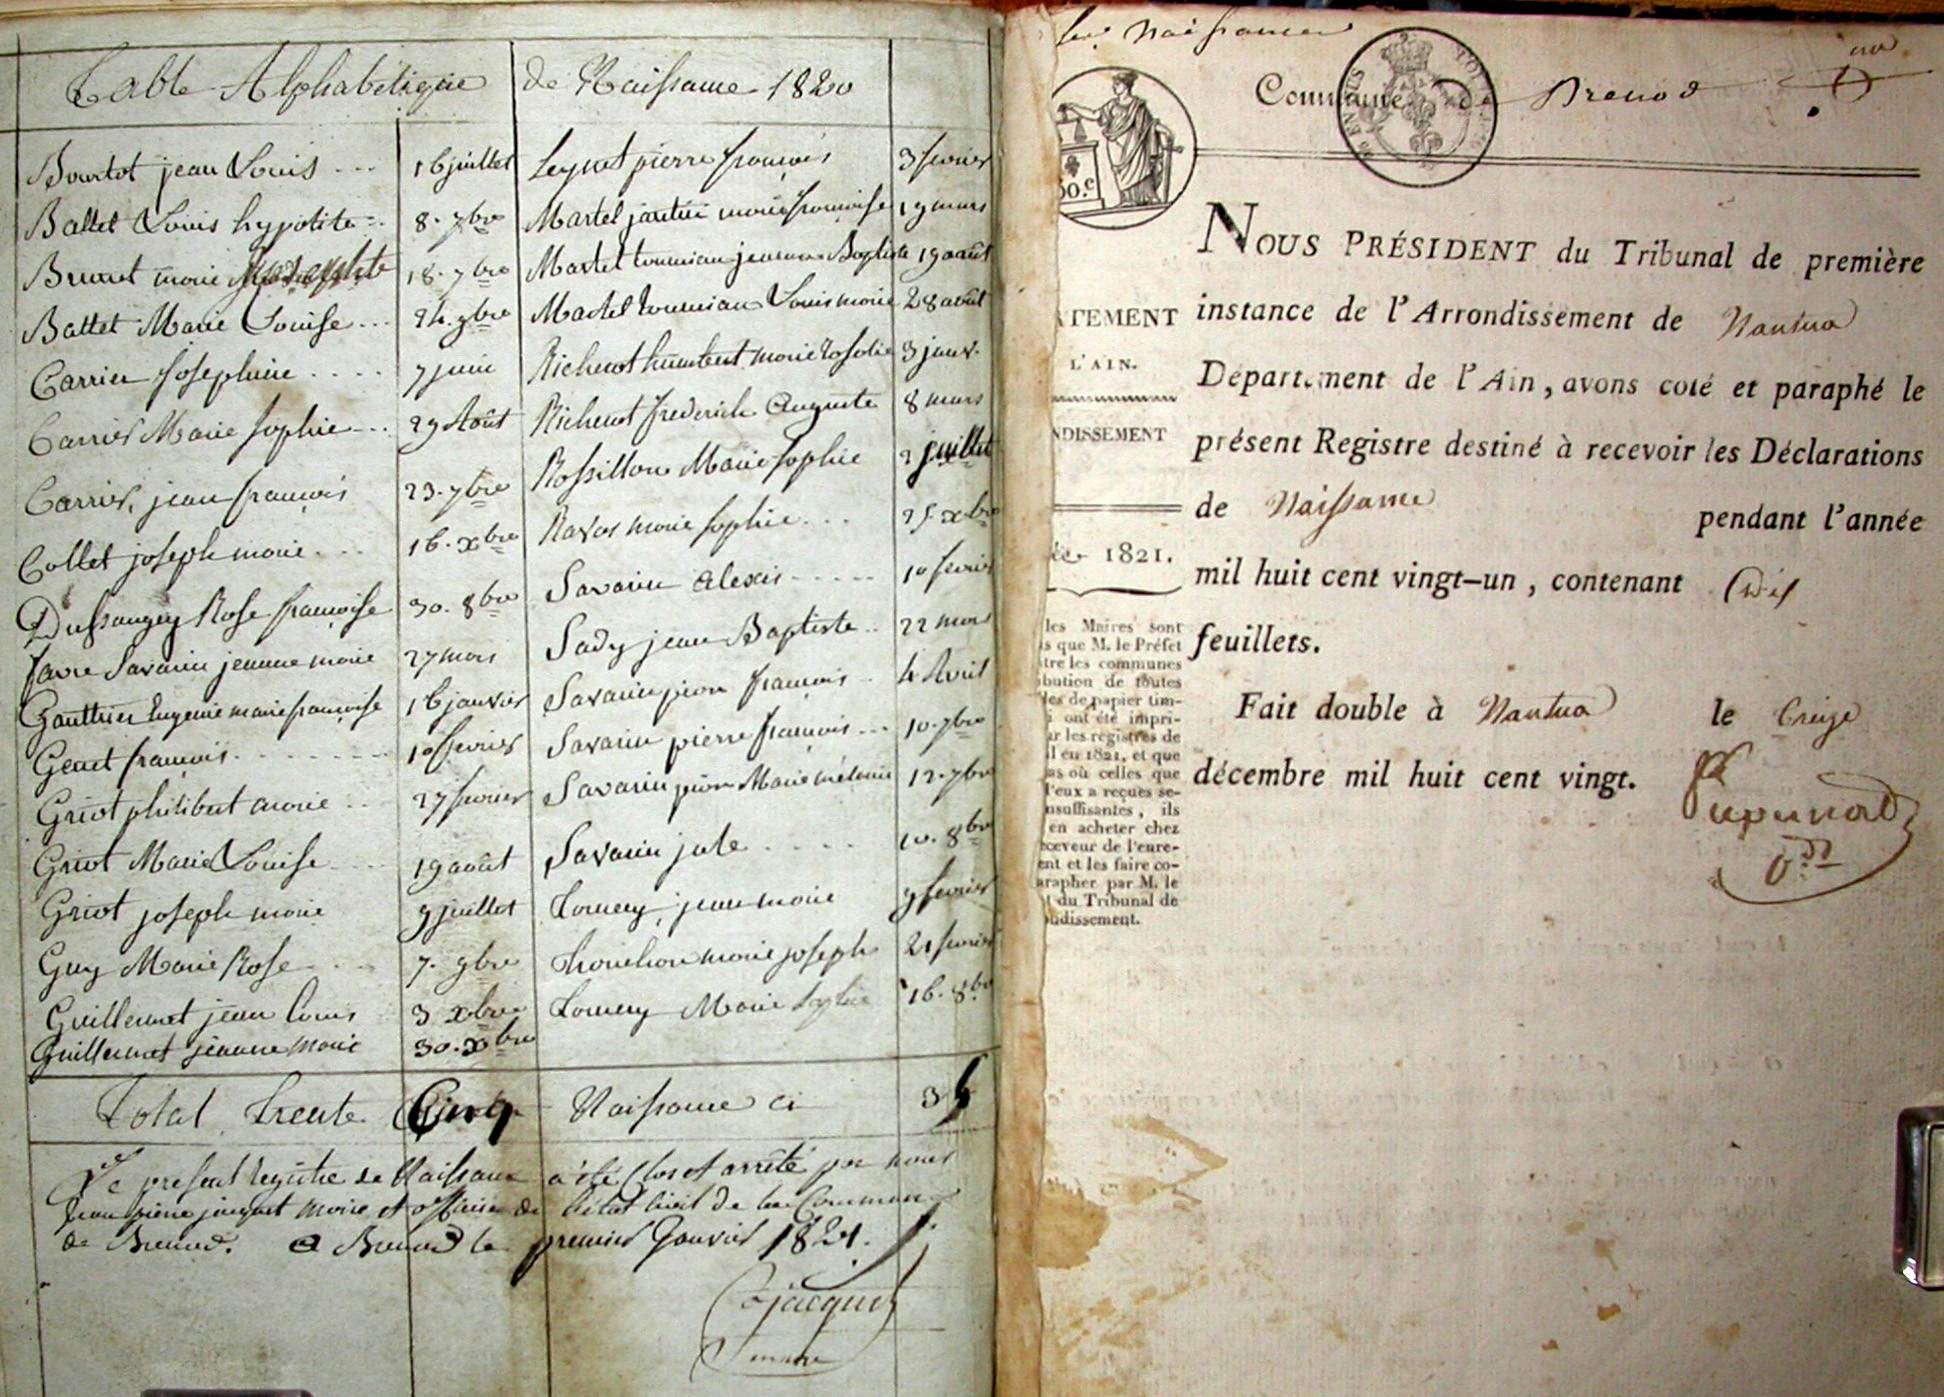 Table Alphabétique de Naissance 1820
Bourtot jean Louis 16 juillet
Ballet Louis hypolite 8. 7bre
Brunet marie 18. 7bre
Ballet Marie Louise 24. 9bre
Carrier Josephine 7 juin
Carrier Marie Sophie 29 Août
Carrier jean françois 23. 7bre
Collet joseph marie 16. xbre
Dussangey Rose françoise 30. 8bre
favre Savarin jeanne marie 27 mars
Gauthier Eugenie marie françoise 16 janvier
Genet françois 10 fevrier
Griot philibert marie 27 fevrier
Griot Marie Louise 19 août
Griot joseph marie 9 juillet
Guy Marie Rose 7. 9bre
Guillermet jean Louis 3 xbre
Guillermet jeanne marie 30. xbre
Leynet pierre françois 3 fevrier
Martel marie françoise 19 mars
Martel tournian jeanne Baptiste 19 août
Martel tournian Louis marie 28 août
Richerot humbert marie rosalie 3 janv.
Richerot frederick Auguste 8 mars
Rossillon Marie Sophie 2 juillet
Ravas marie sophie 25 xbre
Savarin Alexis 10 fevrier
Sady jean Baptiste 22 mars
Savarin pierre françois 4 Avril
Savarin pierre françois 10. 7bre
Savarin pierre Marie melanie 12. 7bre
Savarin jule 10. 8bre
Tournery jean marie 9 fevrier
Thouchon marie joseph 21 fevrier
Tournery Marie Sophie 16. 8bre
Total trente Cinq Naissance ci 35
Le present registre de Naissance a été Clos et arrêté par nous
jean pierre jacquet maire et officier de l'état civil de la Commune
de Brenod. a Brenod le premier Janvier 1821.
jacquet
maire
Naissances
Commune de Brenod
50.c
NOUS PRÉSIDENT du Tribunal de première
instance de l'Arrondissement de Nantua
Département de l'Ain, avons coté et paraphé le
présent Registre destiné à recevoir les Déclarations
de Naissance pendant l'année
mil huit cent vingt-un, contenant Dix
feuillets.
Fait double à Nantua le treize
décembre mil huit cent vingt.
TEMENT
L'AIN.
NDISSEMENT
1821.
les Maires sont
s que M. le Préfet
tre les communes
bution de toutes
les de papier tim-
i ont été impri-
ur les registres de
il en 1821, et que
as où celles que
l'eux a reçues se-
nsuffisantes, ils
en acheter chez
ceveur de l'enre-
ent et les faire co-
arapher par M. le
t du Tribunal de
ndissement.